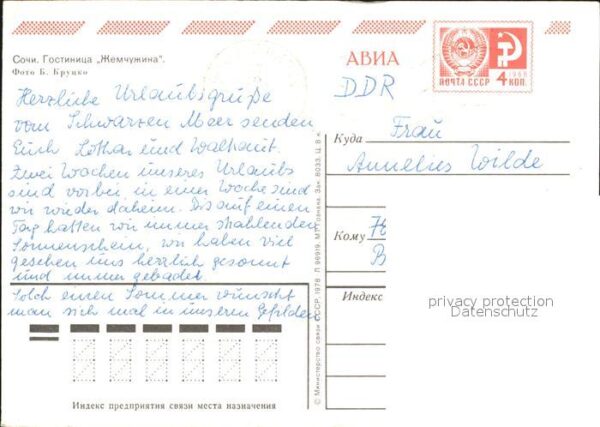 Сочи. Гостиница „Жемчужина“.
Фото Б. Круцко
АВИА
ПОЧТА СССР 4 КОП.
1966
DDR
Herzliche Urlaubsgrüße
vom Schwarzen Meer senden
Euch Lothar und Waltraut.
Zwei Wochen unseres Urlaubs
sind vorbei in einer Woche sind
wir wieder daheim. Bis auf einen
Tag hatten wir immer strahlenden
Sonnenschein, wir haben viel
gesehen uns herrlich gesonnt
und immer gebadet.
Solch einen Sommer wünscht
man sich mal in unseren Gefilden
Куда Frau
Annelies Wilde
Кому
Индекс
privacy protection
Datenschutz
Индекс предприятия связи места назначения
© Министерство связи СССР, 1978. Л 96919. МТ Гознака. Зак. 8033. Ц. 8 к.